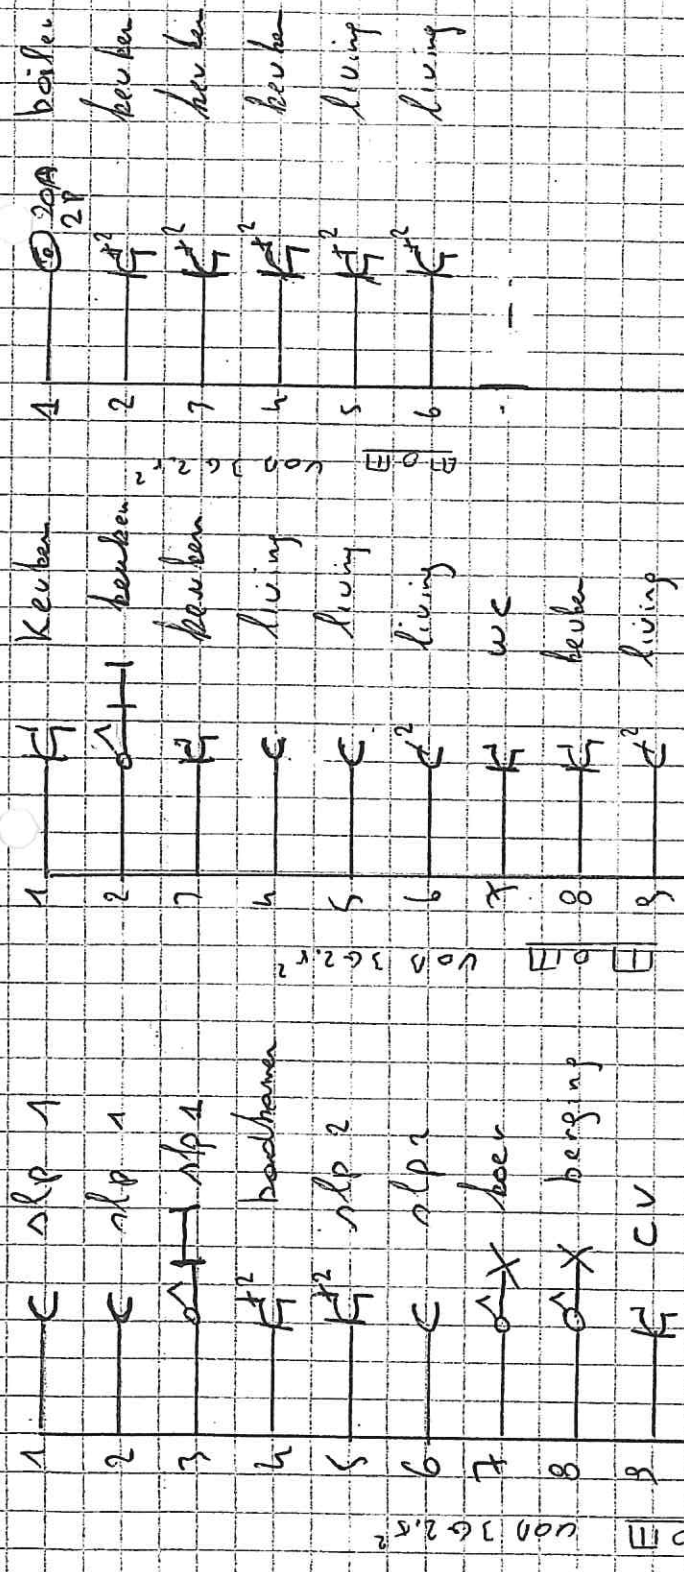 1 boiler
20A
2P
2 x2 keuken
3 x2 keuken
4 x2 keuken
5 x2 living
6 x2 living
VOB 3G2,5²
1 Keuken
2 keuken
3 keuken
4 living
5 living
6 x2 living
7 wc
8 keuken
9 x2 living
VOB 3G2,5²
1 slp 1
2 slp 1
3 slp 1
4 x2 badkamer
5 x2 slp 2
6 slp 2
7 koer
8 berging
9 CV
VOB 3G2,5²